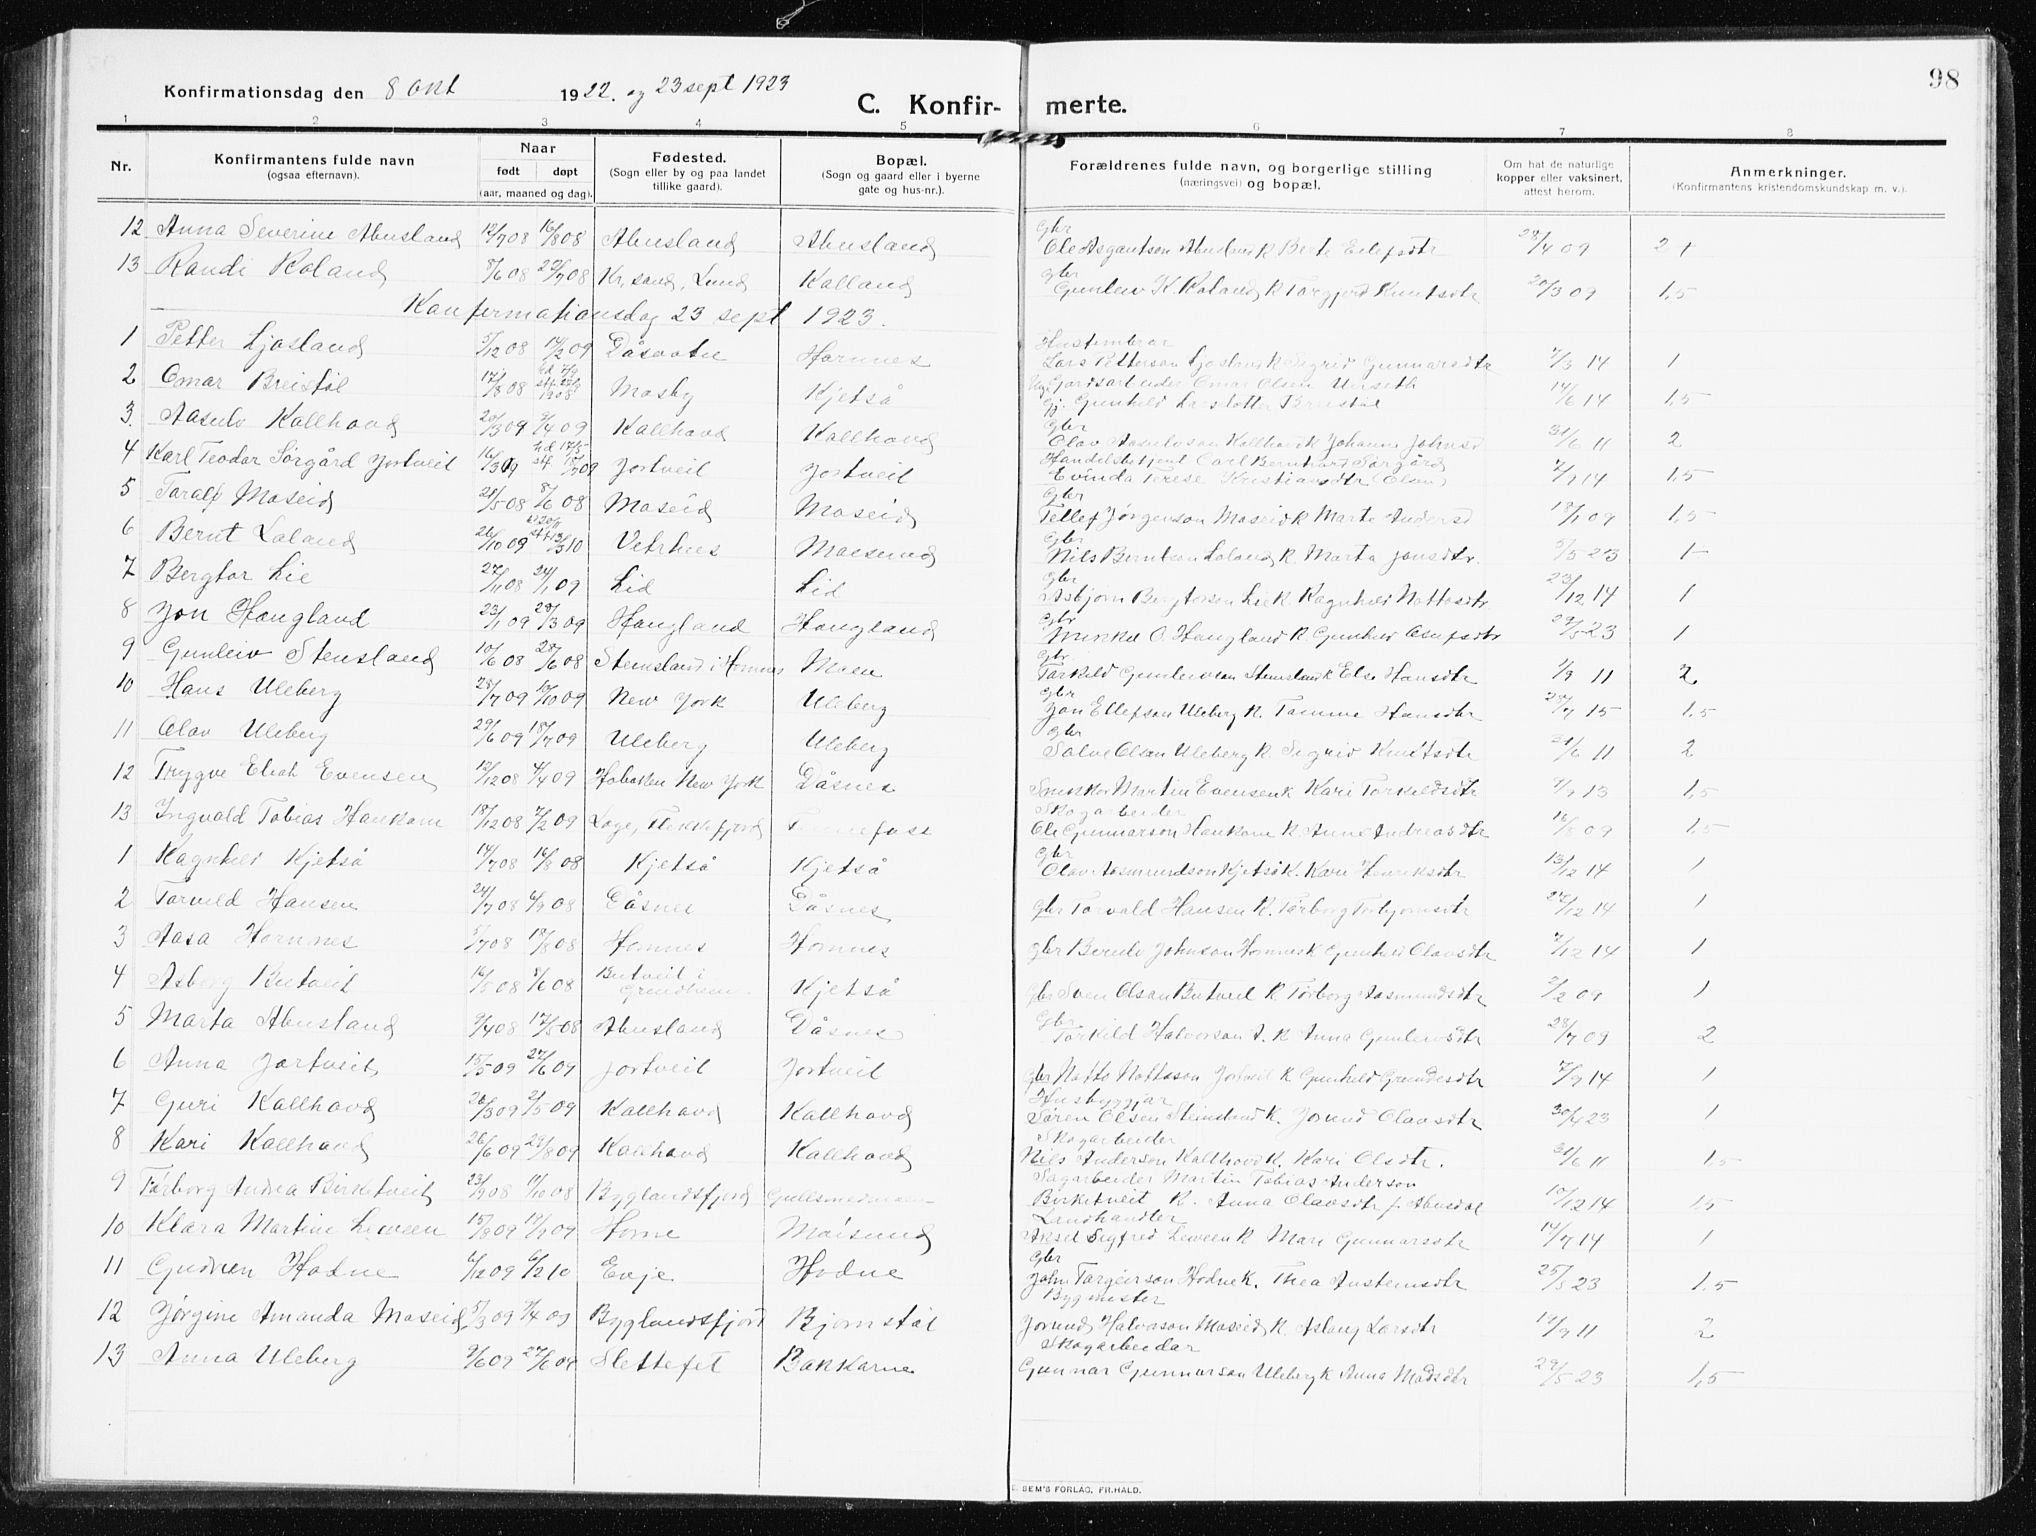 98
Konfirmationsdag den 8 Okt 1922. og 23 sept 1923
C. Konfir- merte.
1 2 3 4 5 6 7 8
Nr. Konfirmantens fulde navn (ogsaa efternavn). Naar født døpt (aar, maaned og dag). Fødested. (Sogn eller by og paa landet tillike gaard). Bopæl. (Sogn og gaard eller i byerne gate og hus-nr.). Forældrenes fulde navn, og borgerlige stilling (næringsvei) og bopæl. Om hat de naturlige kopper eller vaksinert, attest herom. Anmerkninger. (Konfirmantens kristendomskundskap m. v.).
12 Anna Severine Abusland 12/7 08 16/8 08 Abusland Abusland Gbr Ole Asgautson Abusland K Berte Eilefsdtr 28/4 09 2+
13 Randi Roland 8/6 08 29/7 08 Kr.sand, Lund Kalland Gbr Gunleiv K. Roland K Torgjerd Knutsdtr 20/3 09 1,5
Konfirmationsdag 23 sept 1923.
1 Petter Ljosland 5/12 08 14/2 09 Dåsvatn Hornnes Lars Petterson Ljosland K Sigrid Gunnarsdtr 7/3 14 1
2 Omar Breistøl 17/8 08 1908 Mosby Kjetså Gardsarbeider Omar Olsen
Gj. Gunhild Larsdotter Breistøl 14/6 14 1,5
3. Aasulv Kallhovd 20/3 09 9/4 09 Kallhovd Kallhovd Gbr Olav Aasulvson Kallhovd K Johanne Johnsd 31/6 11 2
4 Karl Teodor Sørgård Jortveit 16/3 09 Jortveit Jortveit Handelsbetjent Carl Bernhard Sørgård
Evinda Terese Kristiansdtr 7/7 14 1,5
5 Taralf Moseid 21/5 08 8/6 08 Moseid Moseid Gbr Tellef Jørgenson Moseid K Marte Andersd 18/1 09 1,5
6 Bernt Loland 26/10 09 13/3 10 Vetrhus Moisund Gbr Nils Berntson Loland K. Marta Jonsdtr. 5/5 23 1
7 Bergtor Lie 27/11 08 24/1 09 Lid Lid Gbr Asbjørn Bergtorson Lie K Ragnhild Nottosdtr 23/12 14 1
8 Jon Haugland 23/1 09 28/3 09 Haugland Haugland Gbr Mikkel O. Haugland K. Gunhild 29/5 23 1
9 Gunleiv Stensland 10/6 08 28/6 08 Stensland i Hornnes Moen Gbr Torkild Gunleivson Stensland K Else Hansdtr 1/9 11 2
10 Hans Uleberg 28/7 09 10/10 09 New York Uleberg Gbr Jon Ellefson Uleberg K. Tomine Hansdtr 28/7 15 1,5
11 Olav Uleberg 29/6 09 18/7 09 Uleberg Uleberg Gbr Salve Olsen Uleberg K. Sigrid Knutsdtr 31/6 11 2
12 Trygve Eliah Evensen 12/12 08 4/4 09 Hoboken New York Dåsnes Martin Evensen K Kari Torkildsdtr 9/7 13 1,5
13 Ingvald Tobias Haukom 18/12 08 7/2 09 Loge, Flekkefjord Fennefoss Skogarbeider Ole Gunnarson Haukom K Anne Andreasdtr 16/8 09 1,5
1 Ragnhild Kjetså 14/7 08 16/8 08 Kjetså Kjetså Gbr Olav Aasmundson Kjetså K. Kari Henriksdtr 13/12 14 1
2 Torvild Hansen 24/7 08 6/9 08 Dåsnes Dåsnes Gbr Torvald Hansen K. Tørborg Torbjørnsdtr 27/12 14 1
3 Aasa Hornnes 5/7 08 18/8 08 Hornnes Hornnes Gbr Berulv Johnson Hornnes K Gunhild Olavsdtr 7/12 14 1
4 Asborg Butveit 16/5 08 8/6 08 Butveit i Grindheim Kjetså Gbr Sven Olsen Butveit K Tørborg Aasmundsdtr 2/2 09 1
5 Marta Abusland 9/4 08 17/5 08 Abusland Dåsnes Gbr Torkild Halvorson A. K Anna Gunleivsdtr 28/7 09 2
6 Anna Jortveit 15/5 09 27/6 09 Jortveit Jortveit Gbr Notto Nottoson Jortveit K Gunhild Grundesdtr 7/9 14 1
7 Guri Kallhovd 26/3 09 2/5 09 Kallhovd Kallhovd Husbyggjar Søren Olsen Steinsland K. Jorund Olavsdtr 30/4 23 1
8 Kari Kallhovd 26/6 09 29/8 09 Kallhovd Kallhovd Skogarbeider Nils Anderson Kallhovd K. Kari Olsdtr. 31/6 11 1,5
9 Tørborg Andrea Birketveit 23/9 08 11/10 08 Byglandsfjord Gullsmedmoen Sagarbeider Martin Tobias Anderson
Birketveit K. Anna Olavsdtr f. Abusdal 10/12 14 1,5
10 Klara Martine Leween 15/8 09 19/9 09 Horne Moisund Landhandler Aksel Sigfred Leween K Mari Gunnarsdtr 14/7 14 1
11 Gudrun Hodne 6/12 09 6/2 10 Evje Hodne Gbr John Targeirson Hodne K. Thea Austensdtr 25/5 23 1,5
12 Jørgine Amanda Moseid 5/3 09 9/4 09 Byglandsfjord Bjørnstøl Bygmester Jorund Halvorson Moseid K. Aslaug Larsdtr 12/9 11 2
13 Anna Uleberg 9/6 09 27/6 09 Slettefet Bakkarne Skogarbeidar Gunnar Gunnarson Uleberg K Anna Madsdtr 29/5 23 1,5
SEM'S FORLAG, FR.HALD.